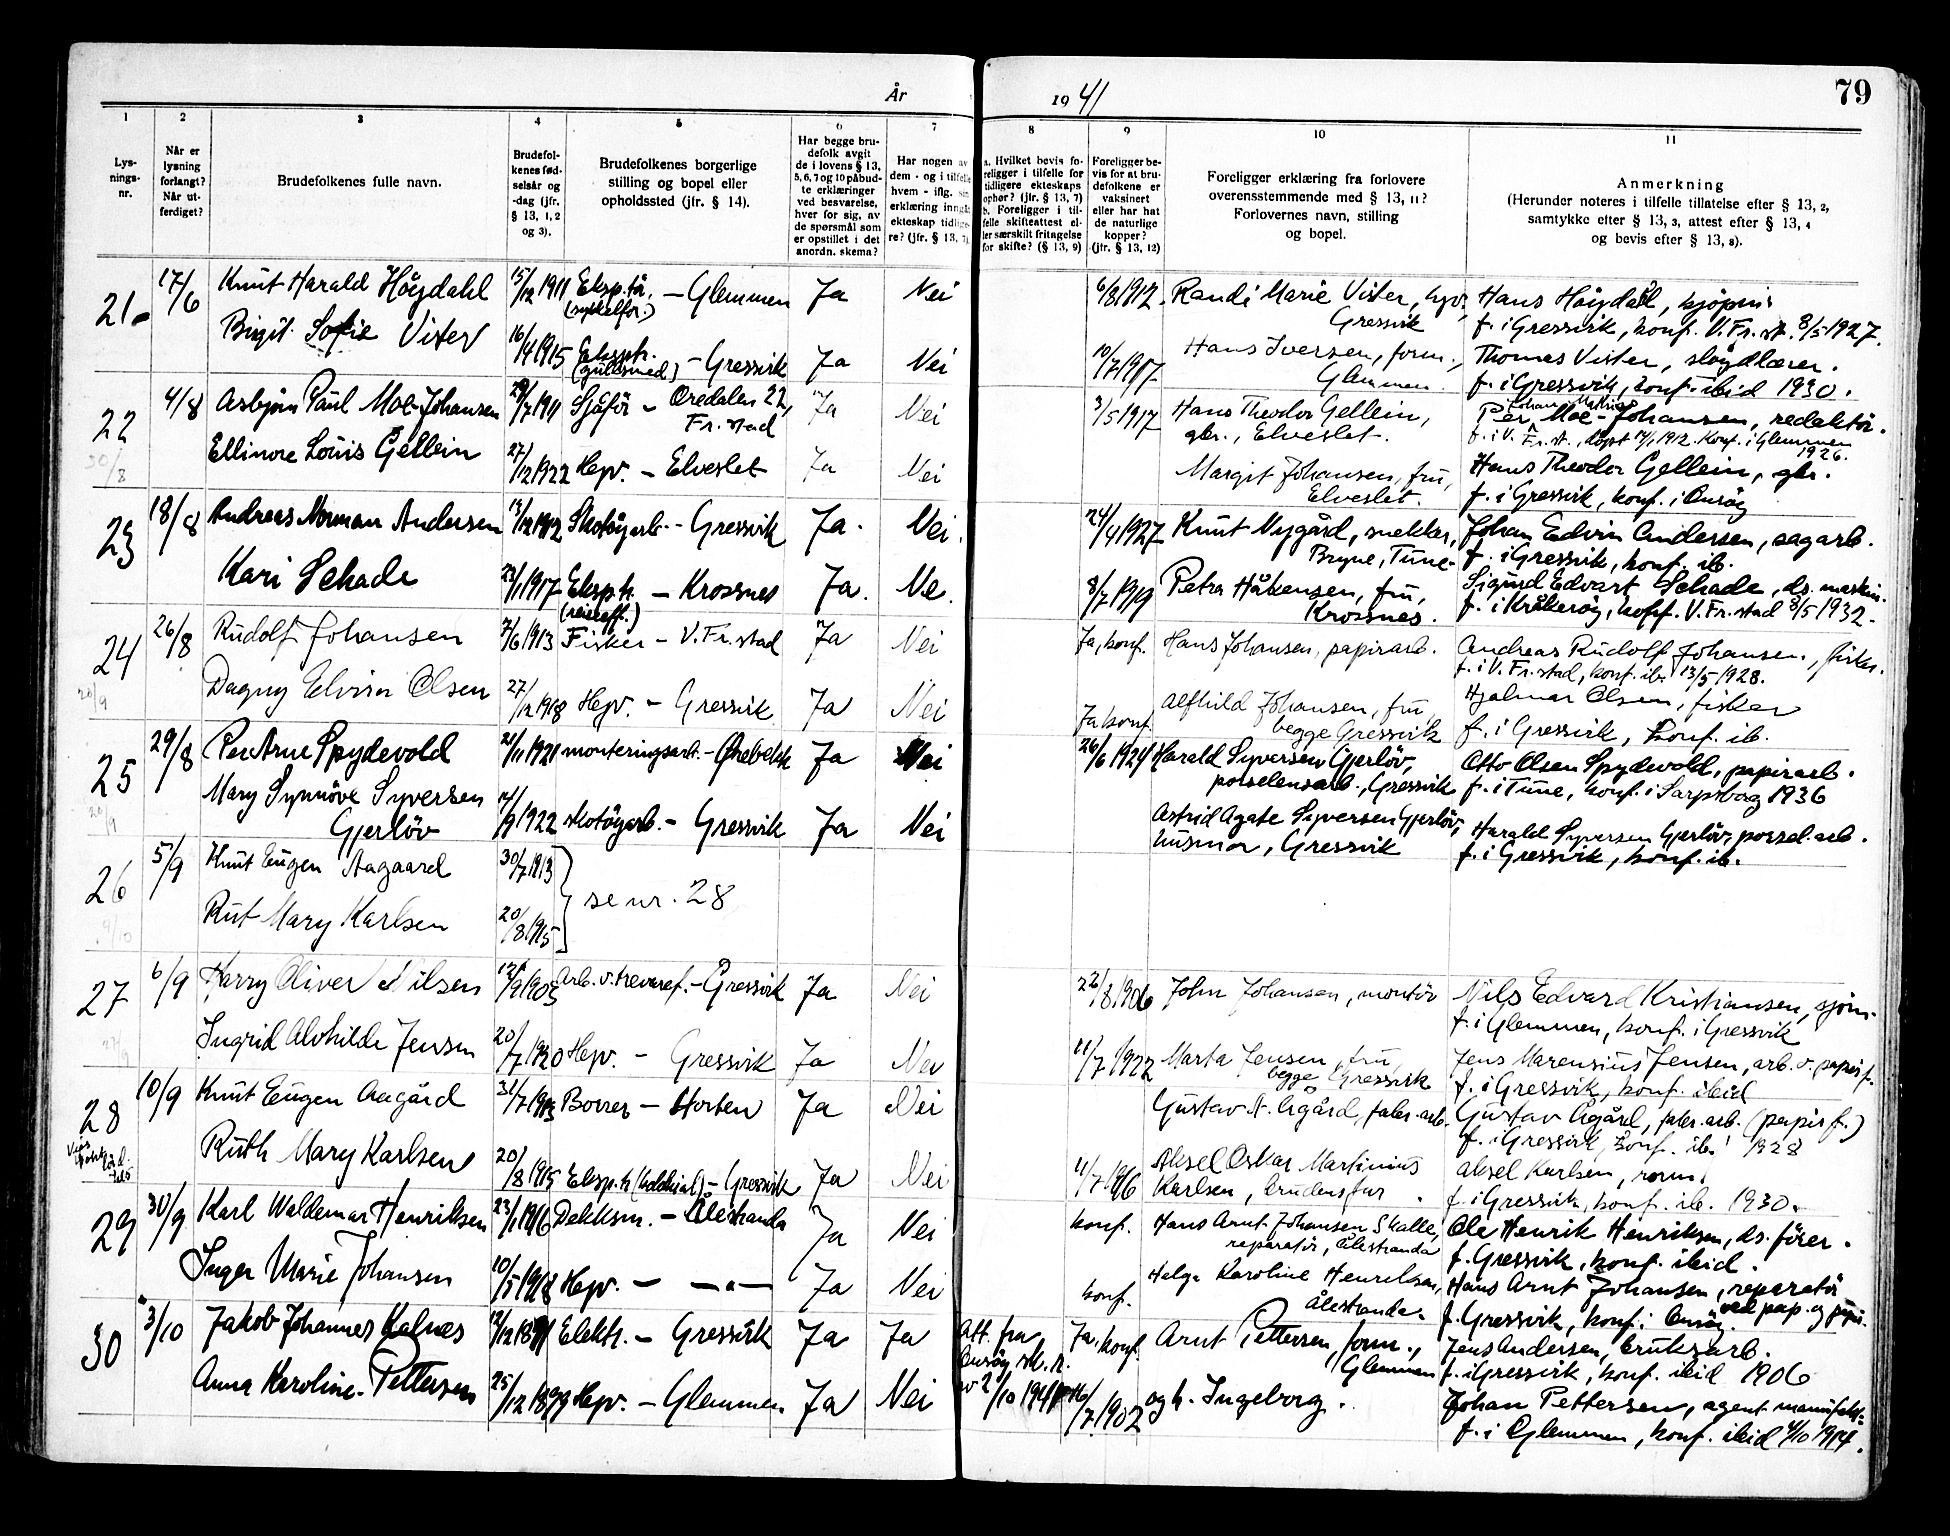 År 1941
79
1 2 3 4 5 6 7 8 9 10 11
Lysningsnr.
Når er lysning forlangt? Når utferdiget?
Brudefolkenes fulle navn.
Brudefolkenes fødselsår og -dag (jfr. § 13, 1, 2 og 3).
Brudefolkenes borgerlige stilling og bopel eller opholdssted (jfr. § 14).
Har begge brudefolk avgit de i lovens § 13, 5, 6, 7 og 10 påbudte erklæringer ved besvarelse, hver for sig, av de spørsmål som er opstillet i det anordn. skema?
Har nogen av dem - og i tilfelle hvem - iflg. sin erklæring inngått ekteskap tidligere? (jfr. § 13, 7).
a. Hvilket bevis foreligger i tilfelle for tidligere ekteskaps ophør? (jfr. § 13, 7) b. Foreligger i tilfelle skifteattest eller særskilt fritagelse for skifte? (§ 13, 9)
Foreligger bevis for at brudefolkene er vaksinert eller har hat de naturlige kopper? (jfr. § 13, 12)
Foreligger erklæring fra forlovere overensstemmende med § 13, 11? Forlovernes navn, stilling og bopel.
Anmerkning (Herunder noteres i tilfelle tillatelse efter § 13, 2, samtykke efter § 13, 3, attest efter § 13, 4 og bevis efter § 13, 8).
21. 17/6 Knut Harald Høgdahl 15/12 1911 Eksp.tø. (sykkelfor.) - Glemmen Ja Nei 6/8 1912. Randi Marie Vister, hpv., Gressvik Hans Høigdahl, kjøpm.
f. i Gressvik, konf. V. Fr.st. 8/5 1927.
Birgit Sofie Vister 16/4 1915 Eksptr. (gullsmed) - Gressvik Ja Nei 10/7 1917 Hans Iversen, form., Glemmen. Thomas Vister, sløydlærer.
f. i Gressvik, konf. ibid 1930.
22 4/8 Asbjørn Paul Moe-Johansen 29/7 1911 Sjåfør - Oredalen 22, Fr.stad Ja Nei 3/5 1917 Hans Theodor Gellein, gbr., Elveslet. Per Johan Mathias Moe-Johansen, redaktør.
f. i V. Fr.st., døpt 14/1 1912. Konf. i Glemmen 1926.
30/8 Ellinore Louis Gellein 27/12 1922 Hpv. - Elveslet Ja Nei Margit Johansen, fru, Elveslet. Hans Theodor Gellein, gbr.
f. i Gressvik, konf. i Onsøy
23 18/8 Andreas Norman Andersen 19/12 1912 Skotøyarb. - Gressvik Ja. Nei. 24/4 1927 Knut Nygård, snekker, Bryne, Tune. Johan Edvin Andersen, sagarb.
f. i Gressvik, konf. ib.
Kari Schade 23/1 1917 Eksp.tr. (reiseeff.) - Krossnes Ja. Ne. 8/7 1919 Petra Håkensen, fru, Krossnes. Sigurd Edvart Schade, ds. maskin.
f. i Kråkerøy, konf. V. Fr.stad 8/5 1932.
24 26/8 Rudolf Johansen 7/6 1913 Fisker - V. Fr.stad Ja Nei Ja, konf. Hans Johansen, papirarb. Andreas Rudolf Johansen, fisker.
f. i V. Fr.stad, konf. ib. 13/5 1928.
20/9 Dagny Elvira Olsen 27/12 1918 Hpv. - Gressvik Ja Nei Ja konf. Alfhild Johansen, fru begge Gressvik Hjalmar Olsen, fisker
f. i Gressvik, konf. ib.
25 29/8 Per Arne Spydevold 21/11 1921 monteringsarb. - Ørebekk Ja Nei 26/6 1924 Harald Syversen Gjerløv, porselensarb., Gressvik Otto Olsen Spydevold, papirarb.
f. i Tune, konf. i Sarpsborg 1936
20/9 Mary Synnøve Syversen Gjerløv 14/9 1922 skotøyarb. - Gressvik Ja Nei Astrid Agate Syversen Gjerløv, husmor, Gressvik Harald Syversen Gjerløv, porsel.arb.
f. i Gressvik, konf. ib.
26 5/9 Knut Eugen Aagaard 30/7 1913
Rut Mary Karlsen 20/8 1915 se nr. 28
27 6/9 Harry Oliver Nilsen 12/9 1905 Arb. v. trevaref. - Gressvik Ja Nei 22/8 1906 John Johansen, montør Nils Edvard Kristiansen, sjøm.
f. i Glemmen, konf. i Gressvik
27/9 Ingrid Alvhilde Jensen 20/7 1920 Hpv. - Gressvik Ja Nei 11/7 1922 Marta Jensen, fru, begge Gressvik Jens Marensius Jensen, arb. v. papirf.
f. i Gressvik, konf. ibid
28 10/9 Knut Eugen Aagård 31/7 1913 Borrer - Horten Ja Nei Gustav A. Ågård, fabr.arb. Gustav Ågård, fabr.arb. (papirf.)
f. i Gressvik, konf. ib. 1928
Ruth Mary Karlsen 20/8 1915 Eksp.tr (kolonial) - Gressvik Ja Nei 11/7 1916 Aksel Oskar Martinius Karlsen, brudens far. Aksel Karlsen, rørm.
f. i Gressvik, konf. ib. 1930.
29 30/9 Karl Waldemar Henriksen 23/1 1916 Dekksm. - Ålestranda Ja Nei konf. Hans Arnt Johansen Skalle, reparatør, Ålestranda Ole Henrik Henriksen, ds. fører.
f. Gressvik, konf. ibid.
Inger Marie Johansen 10/5 1918 Hpv. - - " - Ja Nei konf. Helga Karoline Henriksen, Ålestranda. Hans Arnt Johansen, reparatør ved pap. og
f. Gressvik, konf. i Onsøy.
30 3/10 Jakob Johannes Kalnes 12/12 1891 Elektr. - Gressvik Ja Ja Att. fra Onsøy sk.r. av 2/10 1941 Ja, konf. Arnt Pettersen, form., Glemmen Jens Andersen, bruksarb.
f. i Gressvik, konf. ibid 1906
Anna Karoline Pettersen 25/12 1899 Hpv. - Glemmen Ja Nei 16/7 1902 og h. Ingeborg. Johan Pettersen, agent manufakt.
f. i Glemmen, konf. ibid 4/10 1914.